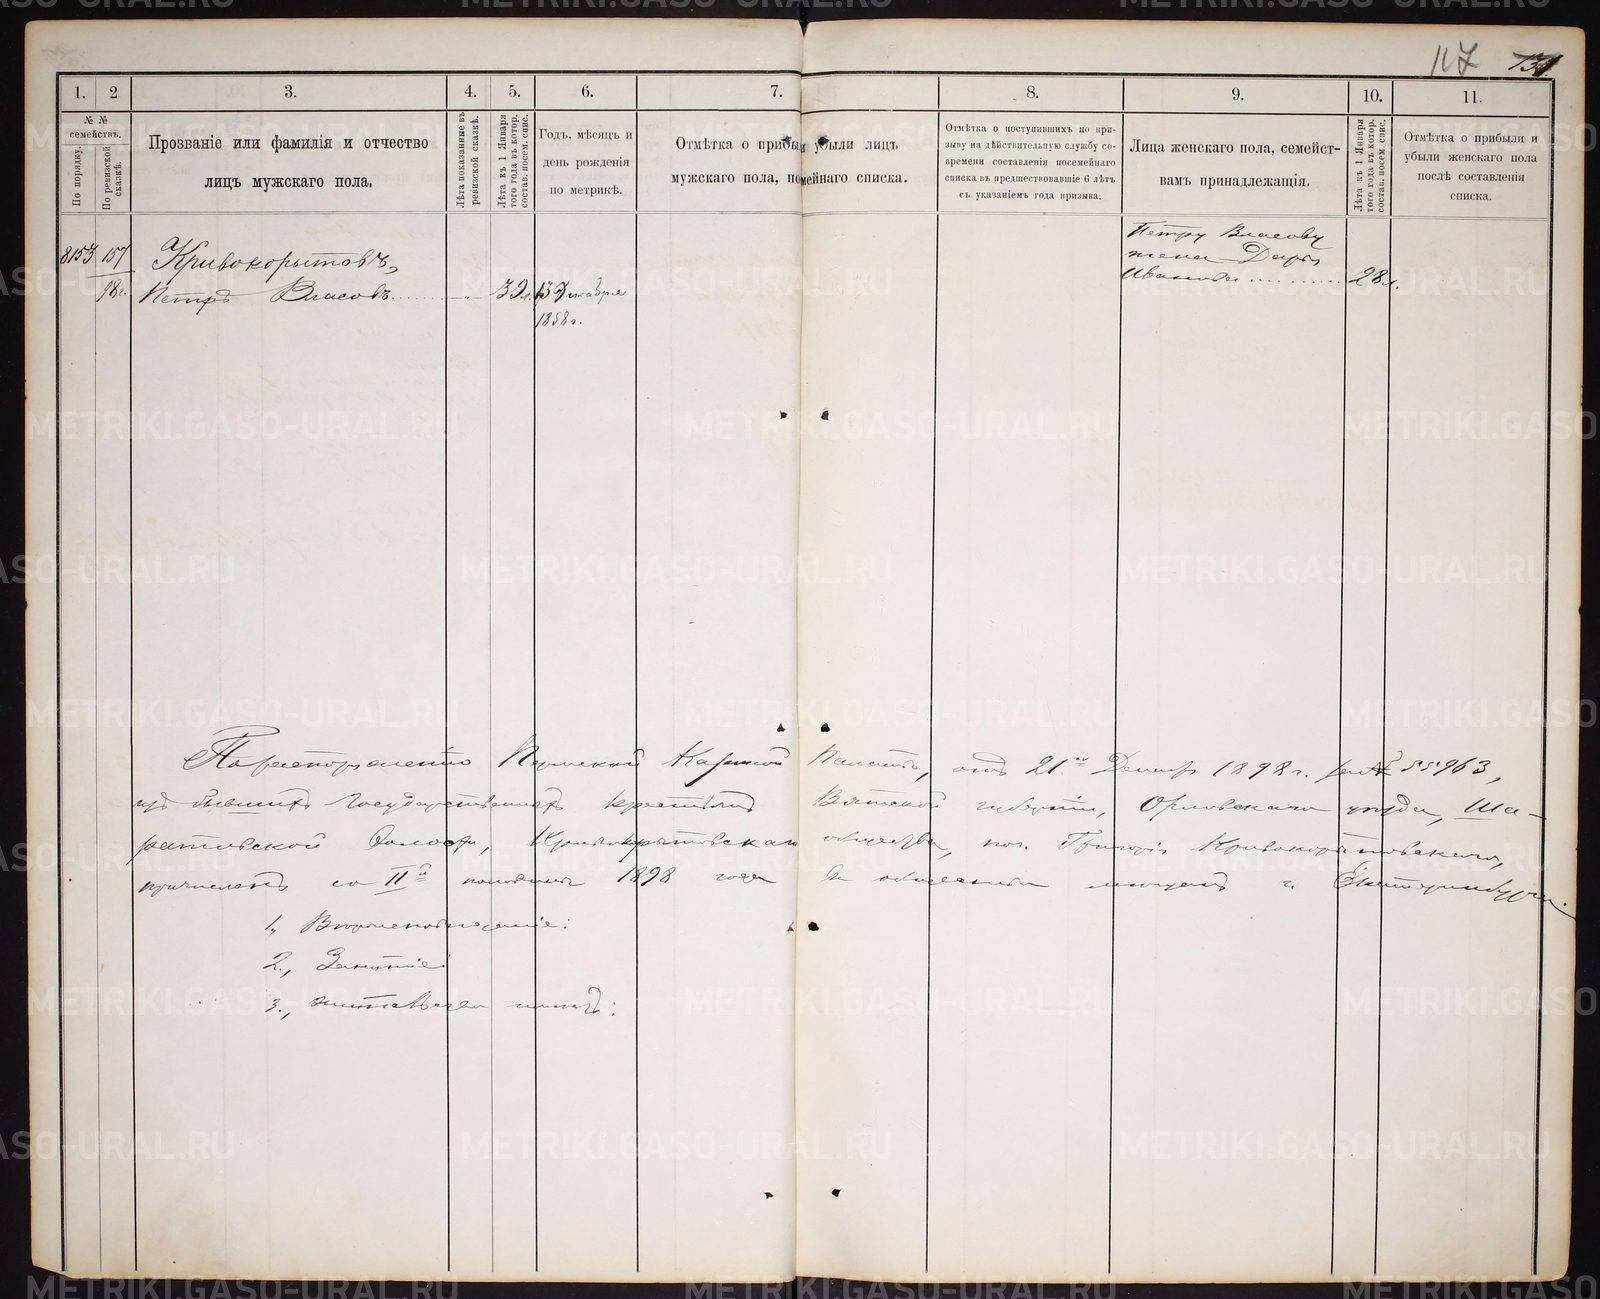 117 131.
1. 2 3. 4. 5. 6. 7. 8. 9. 10. 11.
№ №
семействъ.
По порядку.
По ревизской
сказкѣ.
Прозваніе или фамилія и отчество
лицъ мужскаго пола.
Лѣта показанные въ
ревизской сказкѣ.
Лѣта къ 1 Января
того года въ котор.
состав. посем. спис.
Годъ, мѣсяцъ и
день рожденія
по метрикѣ.
Отмѣтка о прибыли убыли лицъ
мужскаго пола, посемейнаго списка.
Отмѣтка о поступившихъ по при-
зыву на дѣйствительную службу со-
времени составленія посемейнаго
списка въ предшествовавшіе 6 лѣтъ
съ указаніемъ года призыва.
Лица женскаго пола, семейст-
вамъ принадлежащія.
Лѣта къ 1 Января
того года въ котор.
состав. посем. спис.
Отмѣтка о прибыли и
убыли женскаго пола
послѣ составленія
списка.
8153 157
98 г.
Кривокорытовъ,
Петръ Власовъ 39 л. 13 Декабря
1858 г.
Петру Власову
жена Дарья
Иванова 28 л.
По распоряженію Пермской Казенной Палаты, отъ 21 Декабр 1898 г. за № 55963,
изъ бывшихъ Государственныхъ крестьянъ Вятской губерніи, Орловскаго уѣзда, Ша-
ратовской волости, общества, поч. Григорія Кривокорытовскаго,
причисленъ со II й половины 1898 года въ общество мѣщанъ г. Екатеринбурга.
1., Вѣроисповѣданіе:
2., Занятіе:
3.,
METRIKI.GASO-URAL.RU